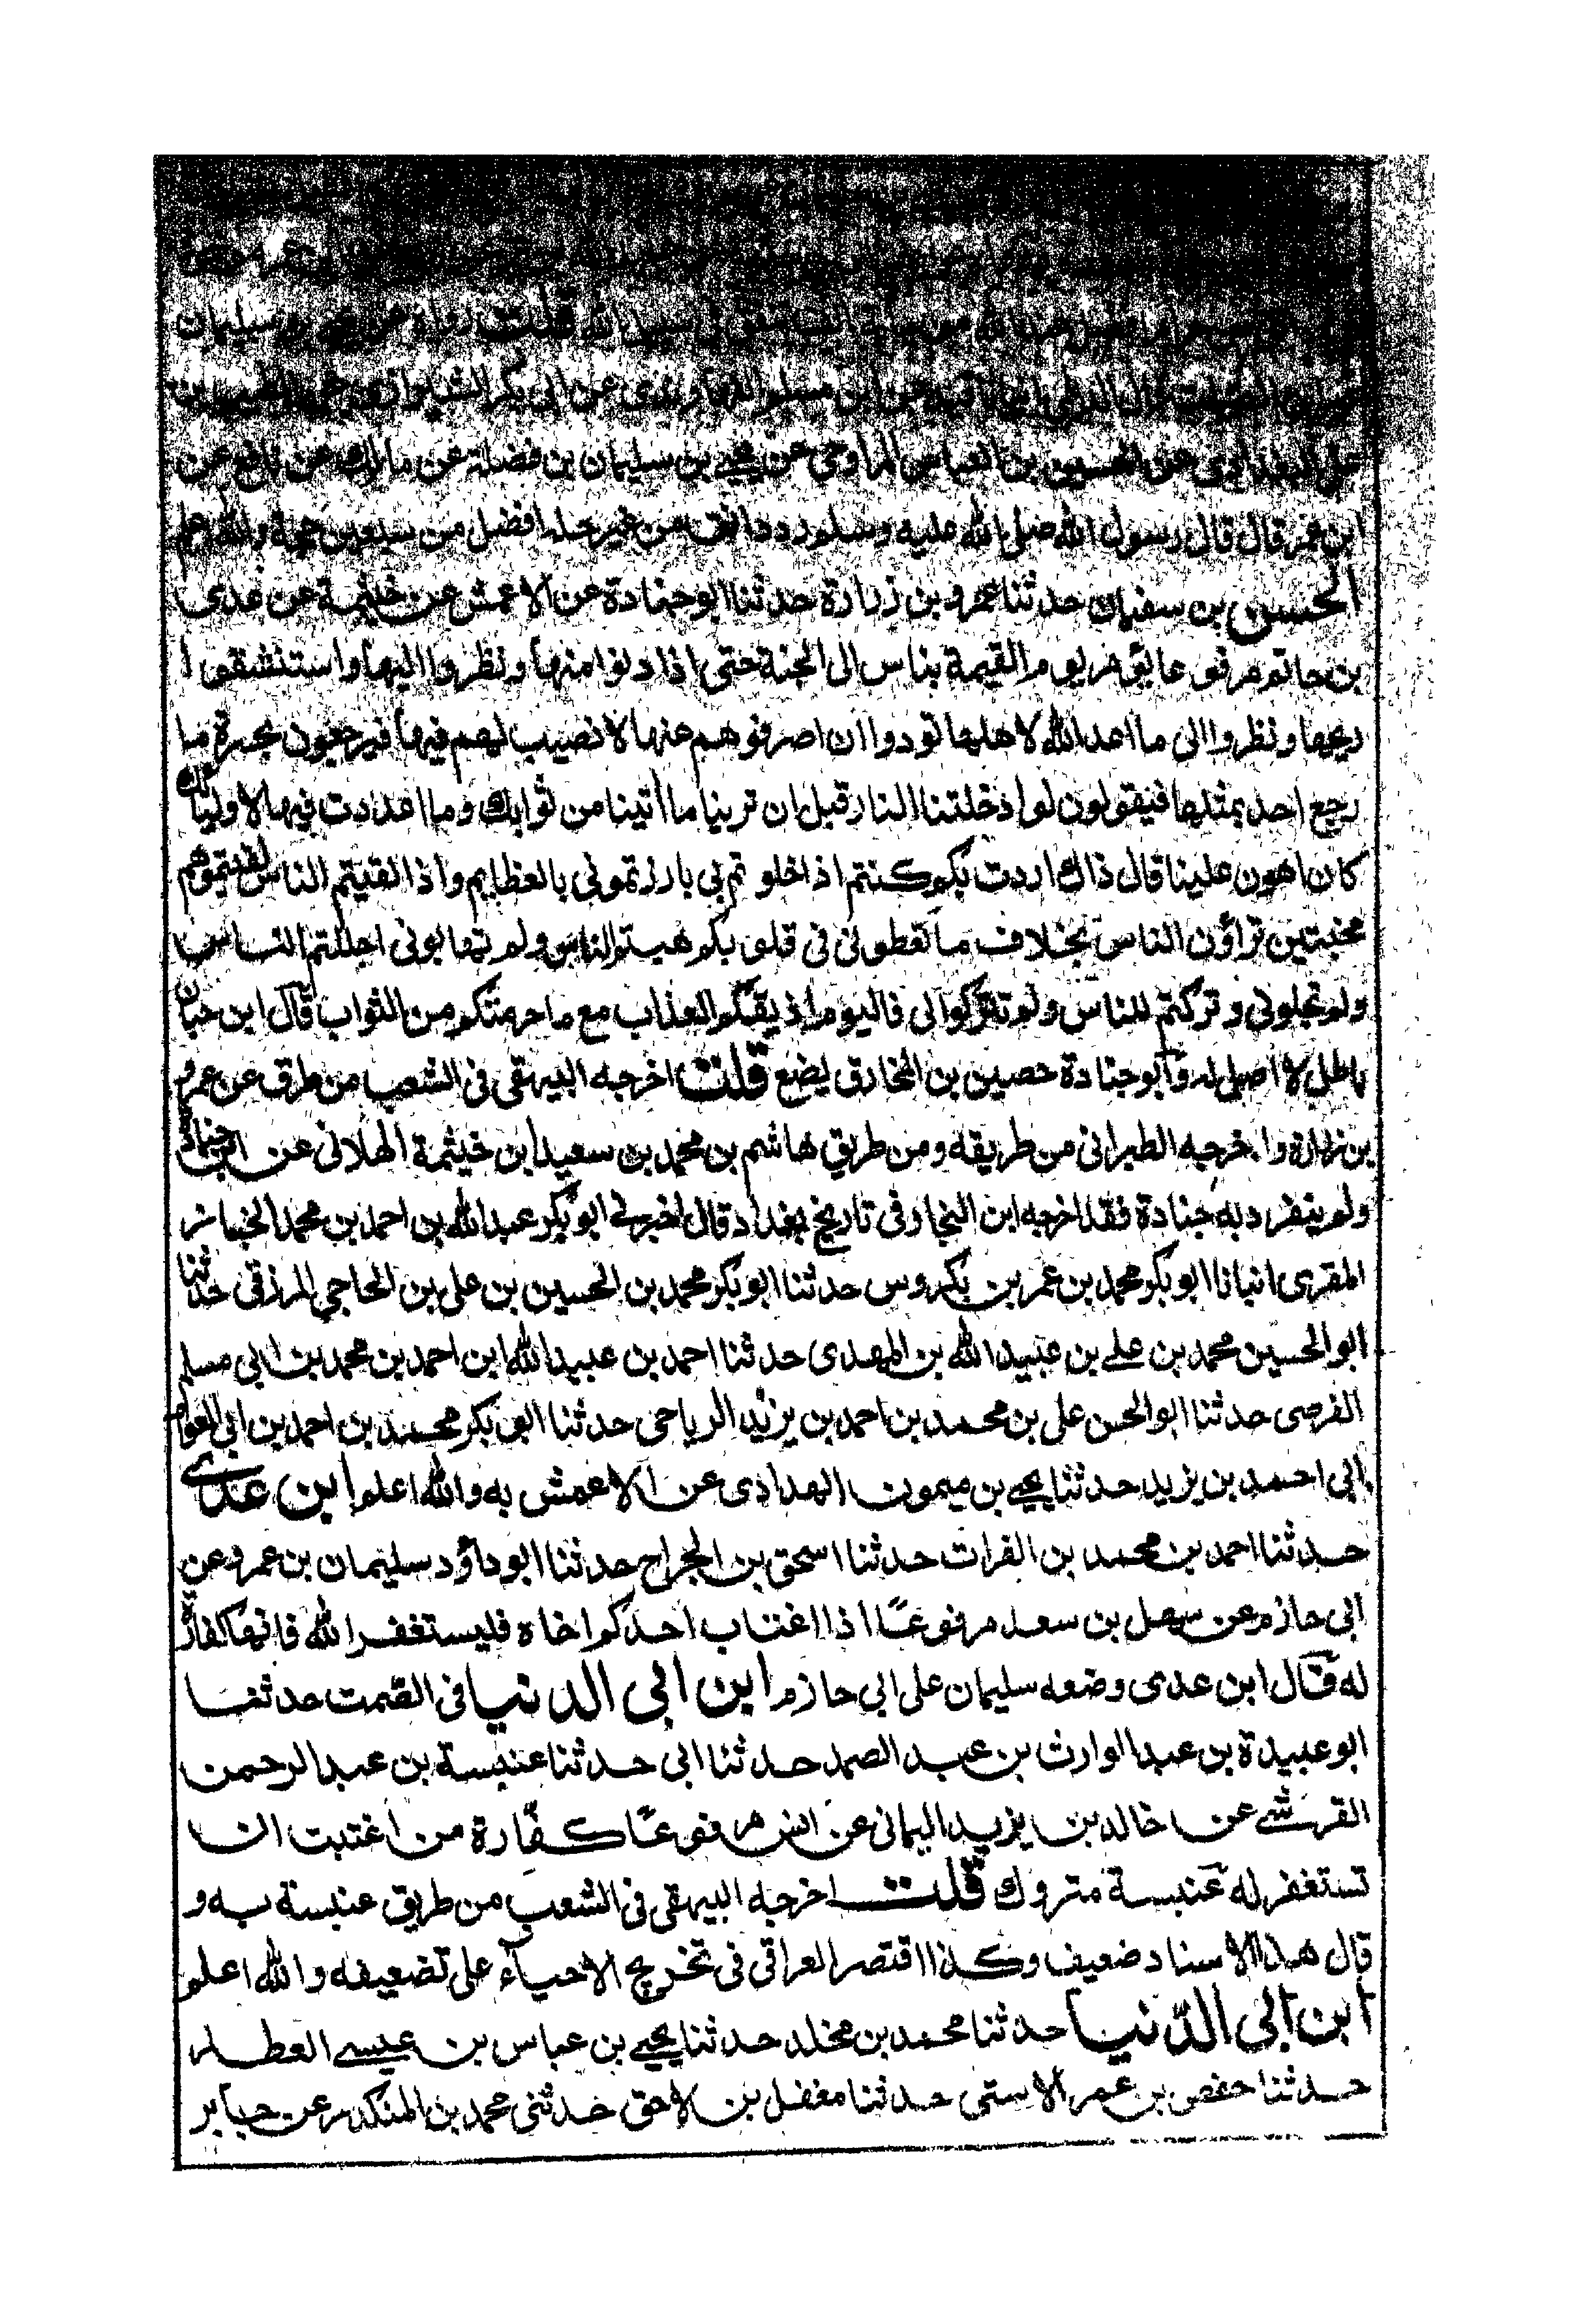 قلت سليمان
عن ابي بكر الشيرازي
على البغدادى عن الحسين بن العباس عن يحيى بن سليمان بن فضلة عن مالك عن نافع عن
ابن عمر قال قال رسول الله صلى الله عليه وسلم رد دانق من غير حله افضل من سبعين حجة والله اعلم
الحسن بن سفيان حدثنا عمرو بن زرارة حدثنا ابو جنادة عن الاعمش عن خيثمة عن عدى
بن حاتم مرفوعا يؤمر يوم القيمة بناس الى الجنة حتى اذا دنوا منها ونظروا اليها واستنشقوا
ريحها ونظروا الى ما اعد الله لاهلها نودوا ان اصرفوهم عنها لا نصيب لهم فيها فيرجعون بحسرة ما
رجع احد بمثلها فيقولون لو ادخلتنا النار قبل ان ترينا ما أتينا من ثوابك وما اعددت فيها لاوليائك
كان اهون علينا قال ذاك اردت بكم كنتم اذا خلوتم بي بارزتموني بالعظايم واذا لقيتم الناس لقيتموهم
مخبتين تراؤن الناس بخلاف ما تعطونى فى قلوبكم هبتم الناس ولم تهابونى اجللتم الناس
ولم تجلونى وتركتم للناس ولم تتركوا لى فاليوم اذيقكم العذاب مع ما حرمتكم من الثواب قال ابن حبان
باطل لا اصل له وابو جنادة حصين بن المخارق يضع قلت اخرجه البيهقى فى الشعب من طرق عن عمرو
بن زرارة واخرجه الطبرانى من طريقه ومن طريق هاشم بن محمد بن سعيد ابن خيثمة الهلانى عن ابى جنادة
ولم ينفرد به جنادة فقد اخرجه ابن النجار فى تاريخ بغداد قال اخبرنى ابو بكر عبد الله بن احمد بن محمد الخباز
المقرى انبانا ابو بكر محمد بن عمر بن بكروس حدثنا ابو بكر محمد بن الحسين بن على بن الحاجي المرزقى حدثنا
ابو الحسين محمد بن على بن عبيد الله بن المهدى حدثنا احمد بن عبيد الله ابن احمد بن محمد بن ابى مسلم
الفرضى حدثنا ابو الحسن على بن محمد بن احمد بن يزيد الرياحى حدثنا ابى بكر محمد بن احمد بن ابى العوام
ابى احمد بن يزيد حدثنا يحيى بن ميمون الهدادى عن الاعمش به والله اعلم ابن عدى
حدثنا احمد بن محمد بن الفرات حدثنا اسحق بن الجراح حدثنا ابو داؤد سليمان بن عمرو عن
ابى حازم عن سهل بن سعد مرفوعا اذا اغتاب احدكم اخاه فليستغفر الله فانها كفارة
له قال ابن عدى وضعه سليمان على ابى حازم ابن ابى الدنيا فى الصمت حدثنا
ابو عبيدة بن عبد الوارث بن عبد الصمد حدثنا ابى حدثنا عنبسة بن عبد الرحمن
القرشى عن خالد بن يزيد اليمانى عن انس مرفوعا كفارة من اغتبت ان
تستغفر له عنبسة متروك قلت اخرجه البيهقى فى الشعب من طريق عنبسة به و
قال هذا الاسناد ضعيف وكذا اقتصر العراقى فى تخريج الاحياء على تضعيفه والله اعلم
ابن ابى الدنيا حدثنا محمد بن مخلد حدثنا يحيى بن عباس بن عيسى العطار
حدثنا حفص بن عمر الاستى حدثنا مفضل بن لاحق حدثنى محمد بن المنكدر عن جابر